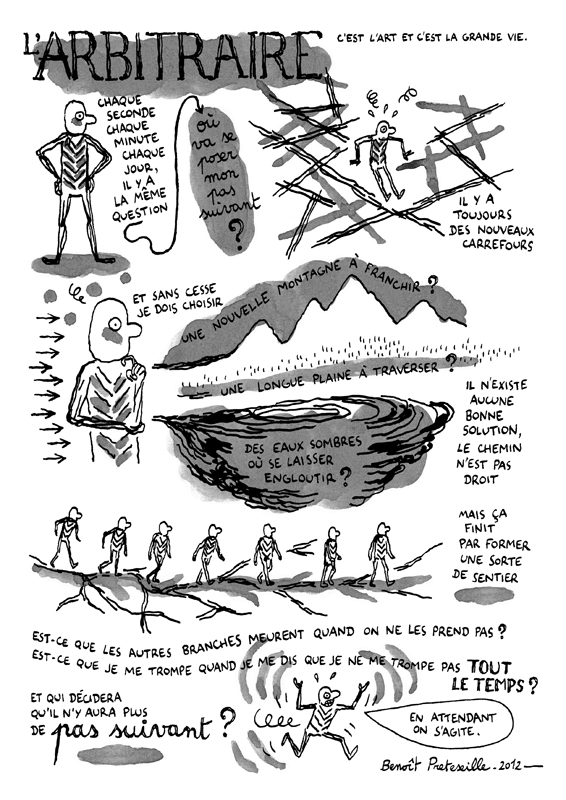 L'ARBITRAIRE
C'EST L'ART ET C'EST LA GRANDE VIE.
CHAQUE
SECONDE
CHAQUE
MINUTE
CHAQUE
JOUR,
IL Y A
LA MÊME
QUESTION
où
va se
poser
mon
pas
suivant
?
IL Y A
TOUJOURS
DES NOUVEAUX
CARREFOURS
ET SANS CESSE
JE DOIS CHOISIR
UNE NOUVELLE MONTAGNE À FRANCHIR ?
UNE LONGUE PLAINE À TRAVERSER ?
DES EAUX SOMBRES
OÙ SE LAISSER
ENGLOUTIR ?
IL N'EXISTE
AUCUNE
BONNE
SOLUTION,
LE CHEMIN
N'EST PAS
DROIT
MAIS ÇA
FINIT
PAR FORMER
UNE SORTE
DE SENTIER
EST-CE QUE LES AUTRES BRANCHES MEURENT QUAND ON NE LES PREND PAS ?
EST-CE QUE JE ME TROMPE QUAND JE ME DIS QUE JE NE ME TROMPE PAS TOUT
LE TEMPS ?
ET QUI DÉCIDERA
QU'IL N'Y AURA PLUS
DE pas suivant ?
EN ATTENDANT
ON S'AGITE.
Benoît Preteseille - 2012 -